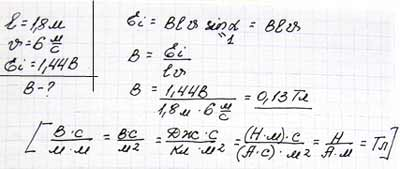 l = 1,8 м
v = 6 м/с
Ei = 1,44 В
B - ?
Ei = Blv sinα = Blv
"1
B = Ei / lv
B = 1,44В / 1,8 м · 6 м/с = 0,13 Тл
[В·с / м·м = Вс / м² = Дж·с / Кл·м² = (Н·м)·с / (А·с)·м² = Н / А·м = Тл]